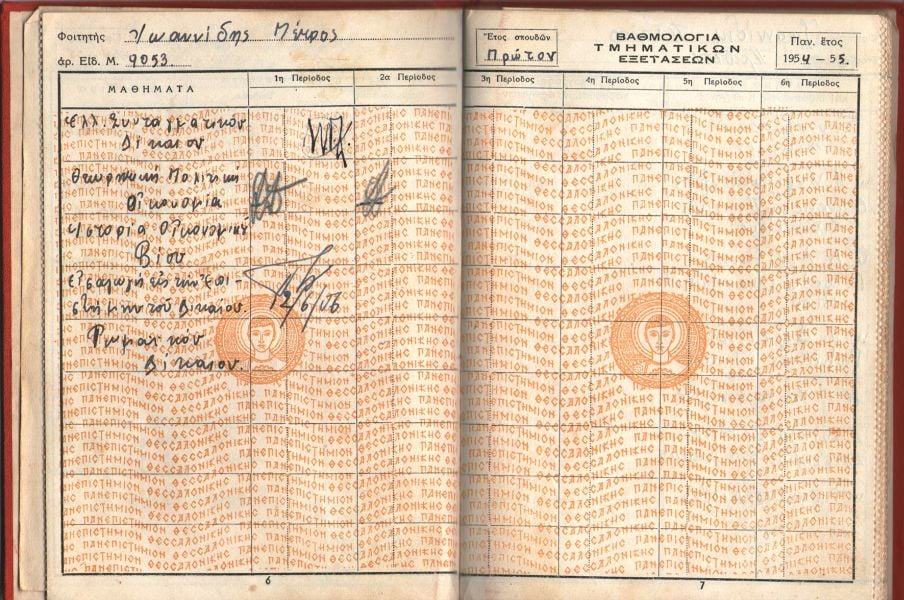 Φοιτητής Ἰωαννίδης Πέτρος
ἀρ. Εἰδ. Μ. 9053.
Ἔτος σπουδῶν
Πρῶτον
ΒΑΘΜΟΛΟΓΙΑ
ΤΜΗΜΑΤΙΚΩΝ
ΕΞΕΤΑΣΕΩΝ
Παν. ἔτος
1954 – 55.
ΜΑΘΗΜΑΤΑ
1η Περίοδος
2α Περίοδος
3η Περίοδος
4η Περίοδος
5η Περίοδος
6η Περίοδος
Ἑλλ. Συνταγματικόν
Δίκαιον
Θεωρητική Πολιτική
Οἰκονομία
Ἱστορία Οἰκονομικ
Βίου
Εἰσαγωγή εἰς τήν Ἐπι-
στήμην τοῦ Δικαίου.
Ρωμαϊκόν
Δίκαιον.
ΠΑΝΕΠΙΣΤΗΜΙΟΝ ΘΕΣΣΑΛΟΝΙΚΗΣ
6
7